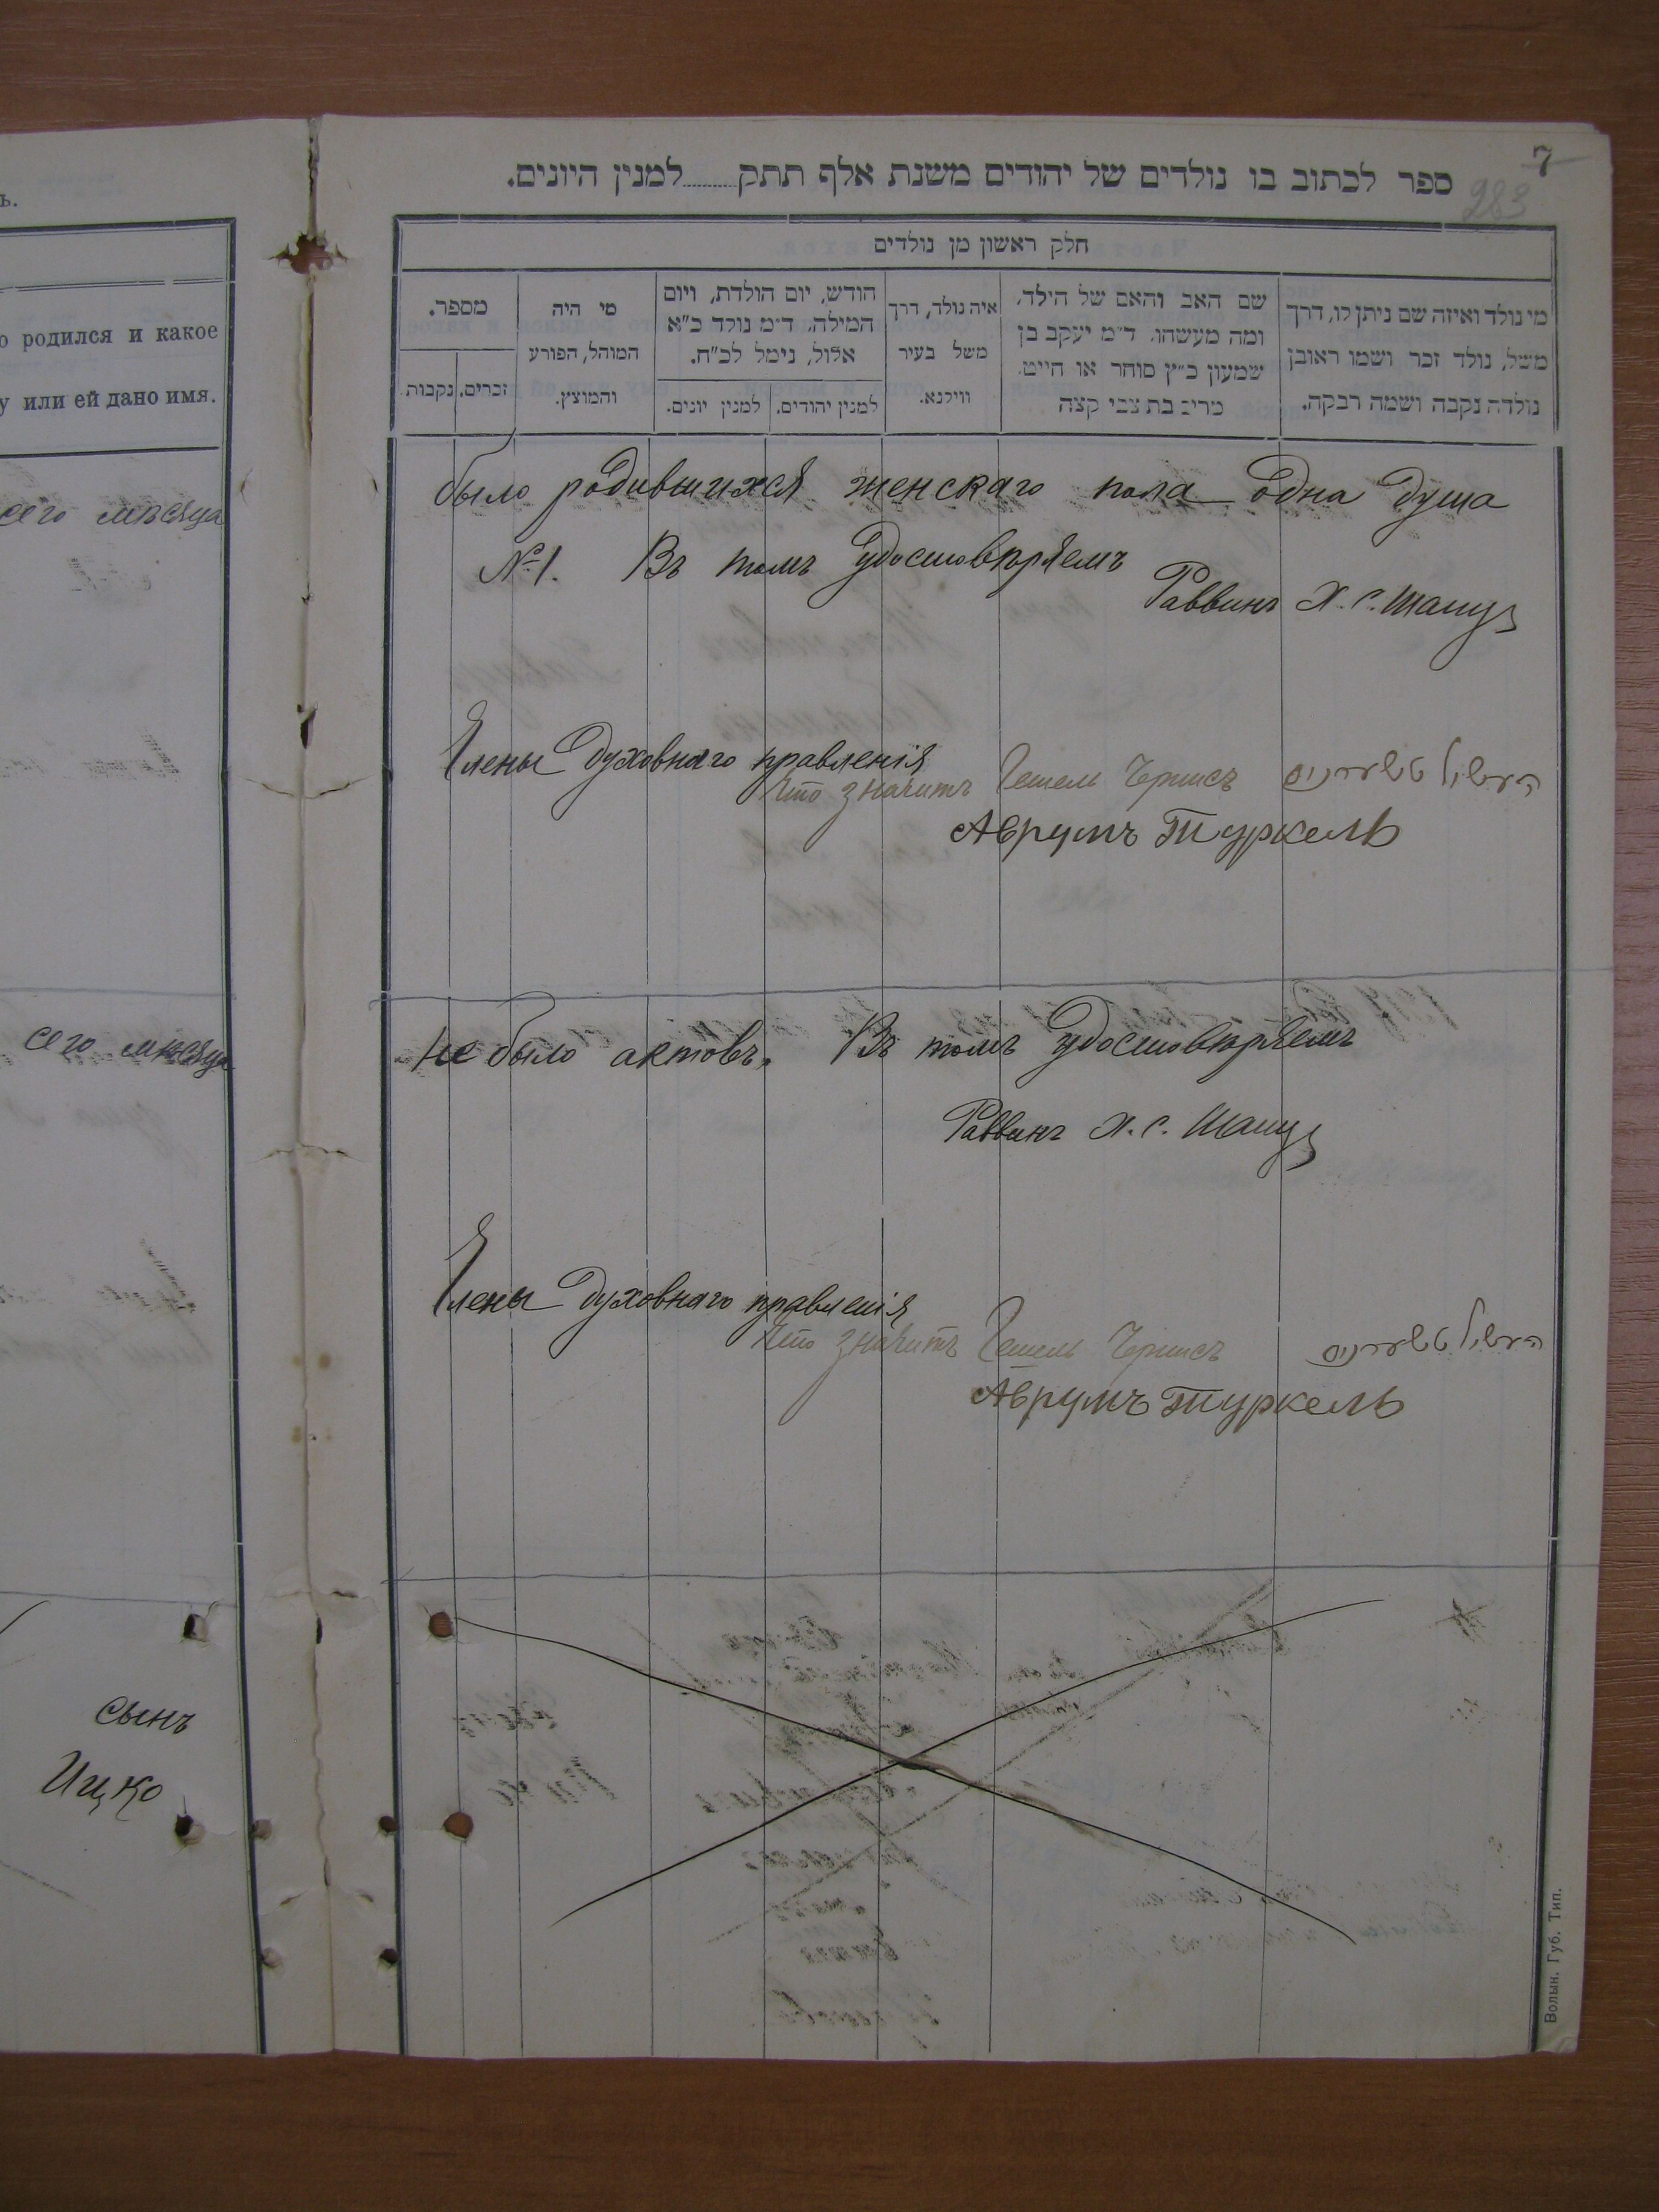 ъ.
о родился и какое
у или ей дано имя.
сего мѣсяца
сего мѣсяца
сынъ
Ицко
7
283
ספר לכתוב בו נולדים של יהודים משנת אלף תתק........למנין היונים.
חלק ראשון מן נולדים
מי נולד ואיזה שם ניתן לו, דרך
משל, נולד זכר ושמו ראובן
נולדה נקבה ושמה רבקה.
שם האב והאם של הילד,
ומה מעשהו. ד״מ יעקב בן
שמעון כ״ץ סוחר או חייט,
מרים בת צבי קצה
איה נולד, דרך
משל בעיר
ווילנא.
חודש, יום הולדת, ויום
המילה, ד״מ נולד כ״א
אלול, נימל לכ״ח.
למנין יהודים.
למנין יונים.
מי היה
המוהל, הפורע
והמוצץ.
מספר.
זכרים.
נקבות.
было родившихся женскаго пола одна душа
№ 1. Въ томъ удостовѣряемъ
Раввинъ Х. С. Шапу
Члены духовнаго правленія
Что значитъ Гешель Чернисъ העשיל טשערניס
Аврумъ Туркель
не было актовъ. Въ томъ удостовѣряемъ
Раввинъ Х. С. Шапу
Члены духовнаго правленія
Что значитъ Гешель Чернисъ העשיל טשערניס
Аврумъ Туркель
Волын. Губ. Тип.